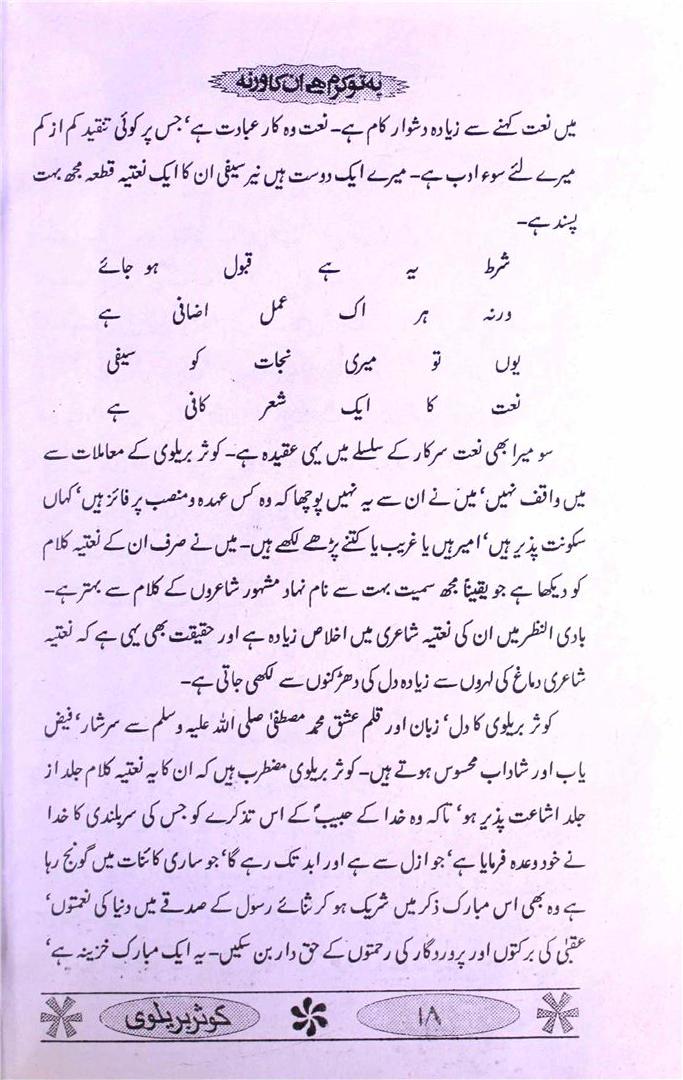 یہ تو کرم ہے ان کا ورنہ
میں نعت کہنے سے زیادہ دشوار کام ہے۔ نعت وہ کار عبادت ہے‘ جس پر کوئی تنقید کم از کم
میرے لئے سوء ادب ہے۔ میرے ایک دوست ہیں نیر سیفی ان کا ایک نعتیہ قطعہ مجھ بہت
پسند ہے۔
شرط یہ ہے قبول ہو جائے
ورنہ ہر اک عمل اضافی ہے
یوں تو میری نجات کو سیفی
نعت کا ایک شعر کافی ہے
سو میرا بھی نعت سرکار کے سلسلے میں یہی عقیدہ ہے۔ کوثر بریلوی کے معاملات سے
میں واقف نہیں‘ میں نے ان سے یہ نہیں پوچھا کہ وہ کس عہدہ و منصب پر فائز ہیں‘ کہاں
سکونت پذیر ہیں‘ امیر ہیں یا غریب یا کتنے پڑھے لکھے ہیں۔ میں نے صرف ان کے نعتیہ کلام
کو دیکھا ہے جو یقیناً مجھ سمیت بہت سے نام نہاد مشہور شاعروں کے کلام سے بہتر ہے۔
بادی النظر میں ان کی نعتیہ شاعری میں اخلاص زیادہ ہے اور حقیقت بھی یہی ہے کہ نعتیہ
شاعری دماغ کی لہروں سے زیادہ دل کی دھڑکنوں سے لکھی جاتی ہے۔
کوثر بریلوی کا دل‘ زبان اور قلم عشق محمد مصطفیٰ صلی اللہ علیہ وسلم سے سرشار‘ فیض
یاب اور شاداب محسوس ہوتے ہیں۔ کوثر بریلوی مضطرب ہیں کہ ان کا یہ نعتیہ کلام جلد از
جلد اشاعت پذیر ہو‘ تاکہ وہ خدا کے حبیبؐ کے اس تذکرے کو جس کی سربلندی کا خدا
نے خود وعدہ فرمایا ہے‘ جو ازل سے ہے اور ابد تک رہے گا‘ جو ساری کائنات میں گونج رہا
ہے وہ بھی اس مبارک ذکر میں شریک ہو کر ثنائے رسول کے صدقے میں دنیا کی نعمتوں‘
عقبیٰ کی برکتوں اور پروردگار کی رحمتوں کے حق دار بن سکیں۔ یہ ایک مبارک خزینہ ہے‘
۱۸ کوثر بریلوی